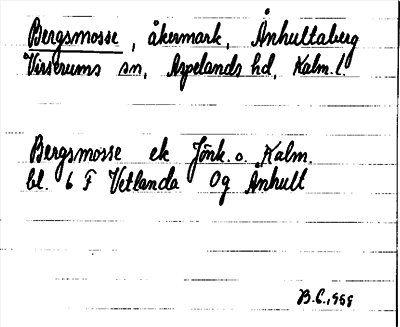 Bergsmosse, åkermark, Ånhultaberg
Virserums sn, Aspelands hd, Kalm. l.
Bergsmosse ek Jönk. o. Kalm.
bl. 6 F Vetlanda 0g Ånhult